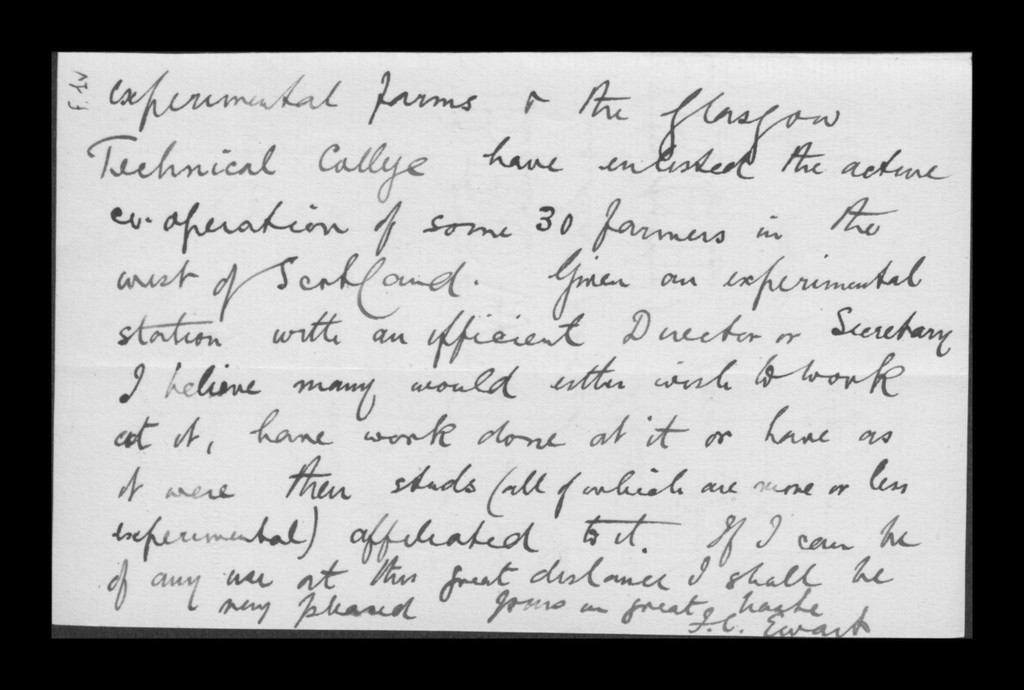 experimental farms & the Glasgow
Technical College have enlisted the active
co-operation of some 30 farmers in the
west of Scotland. Given an experimental
station with an efficient Director or Secretary
I believe many would either wish to work
at it, have work done at it or have as
it were their studs (all of which are more or less
experimental) affiliated to it. If I can be
of any use at this great distance I shall be
very pleased yours in great haste
J.C. Ewart